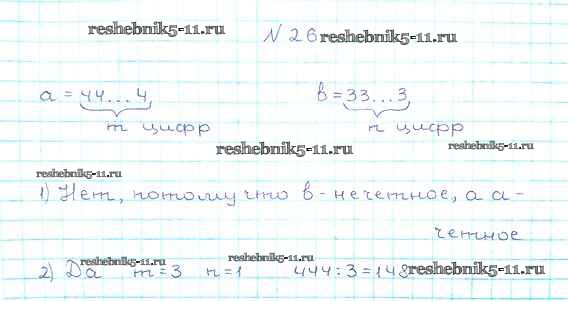 reshebnik5-11.ru
№ 26 reshebnik5-11.ru
a = 44...4 в = 33...3
m цифр n цифр
reshebnik5-11.ru reshebnik5-11.ru
reshebnik5-11.ru
1) Нет, потому что в - нечетное, а а -
четное
reshebnik5-11.ru reshebnik5-11.ru
2) Да m = 3 n = 1 444 : 3 = 148 reshebnik5-11.ru